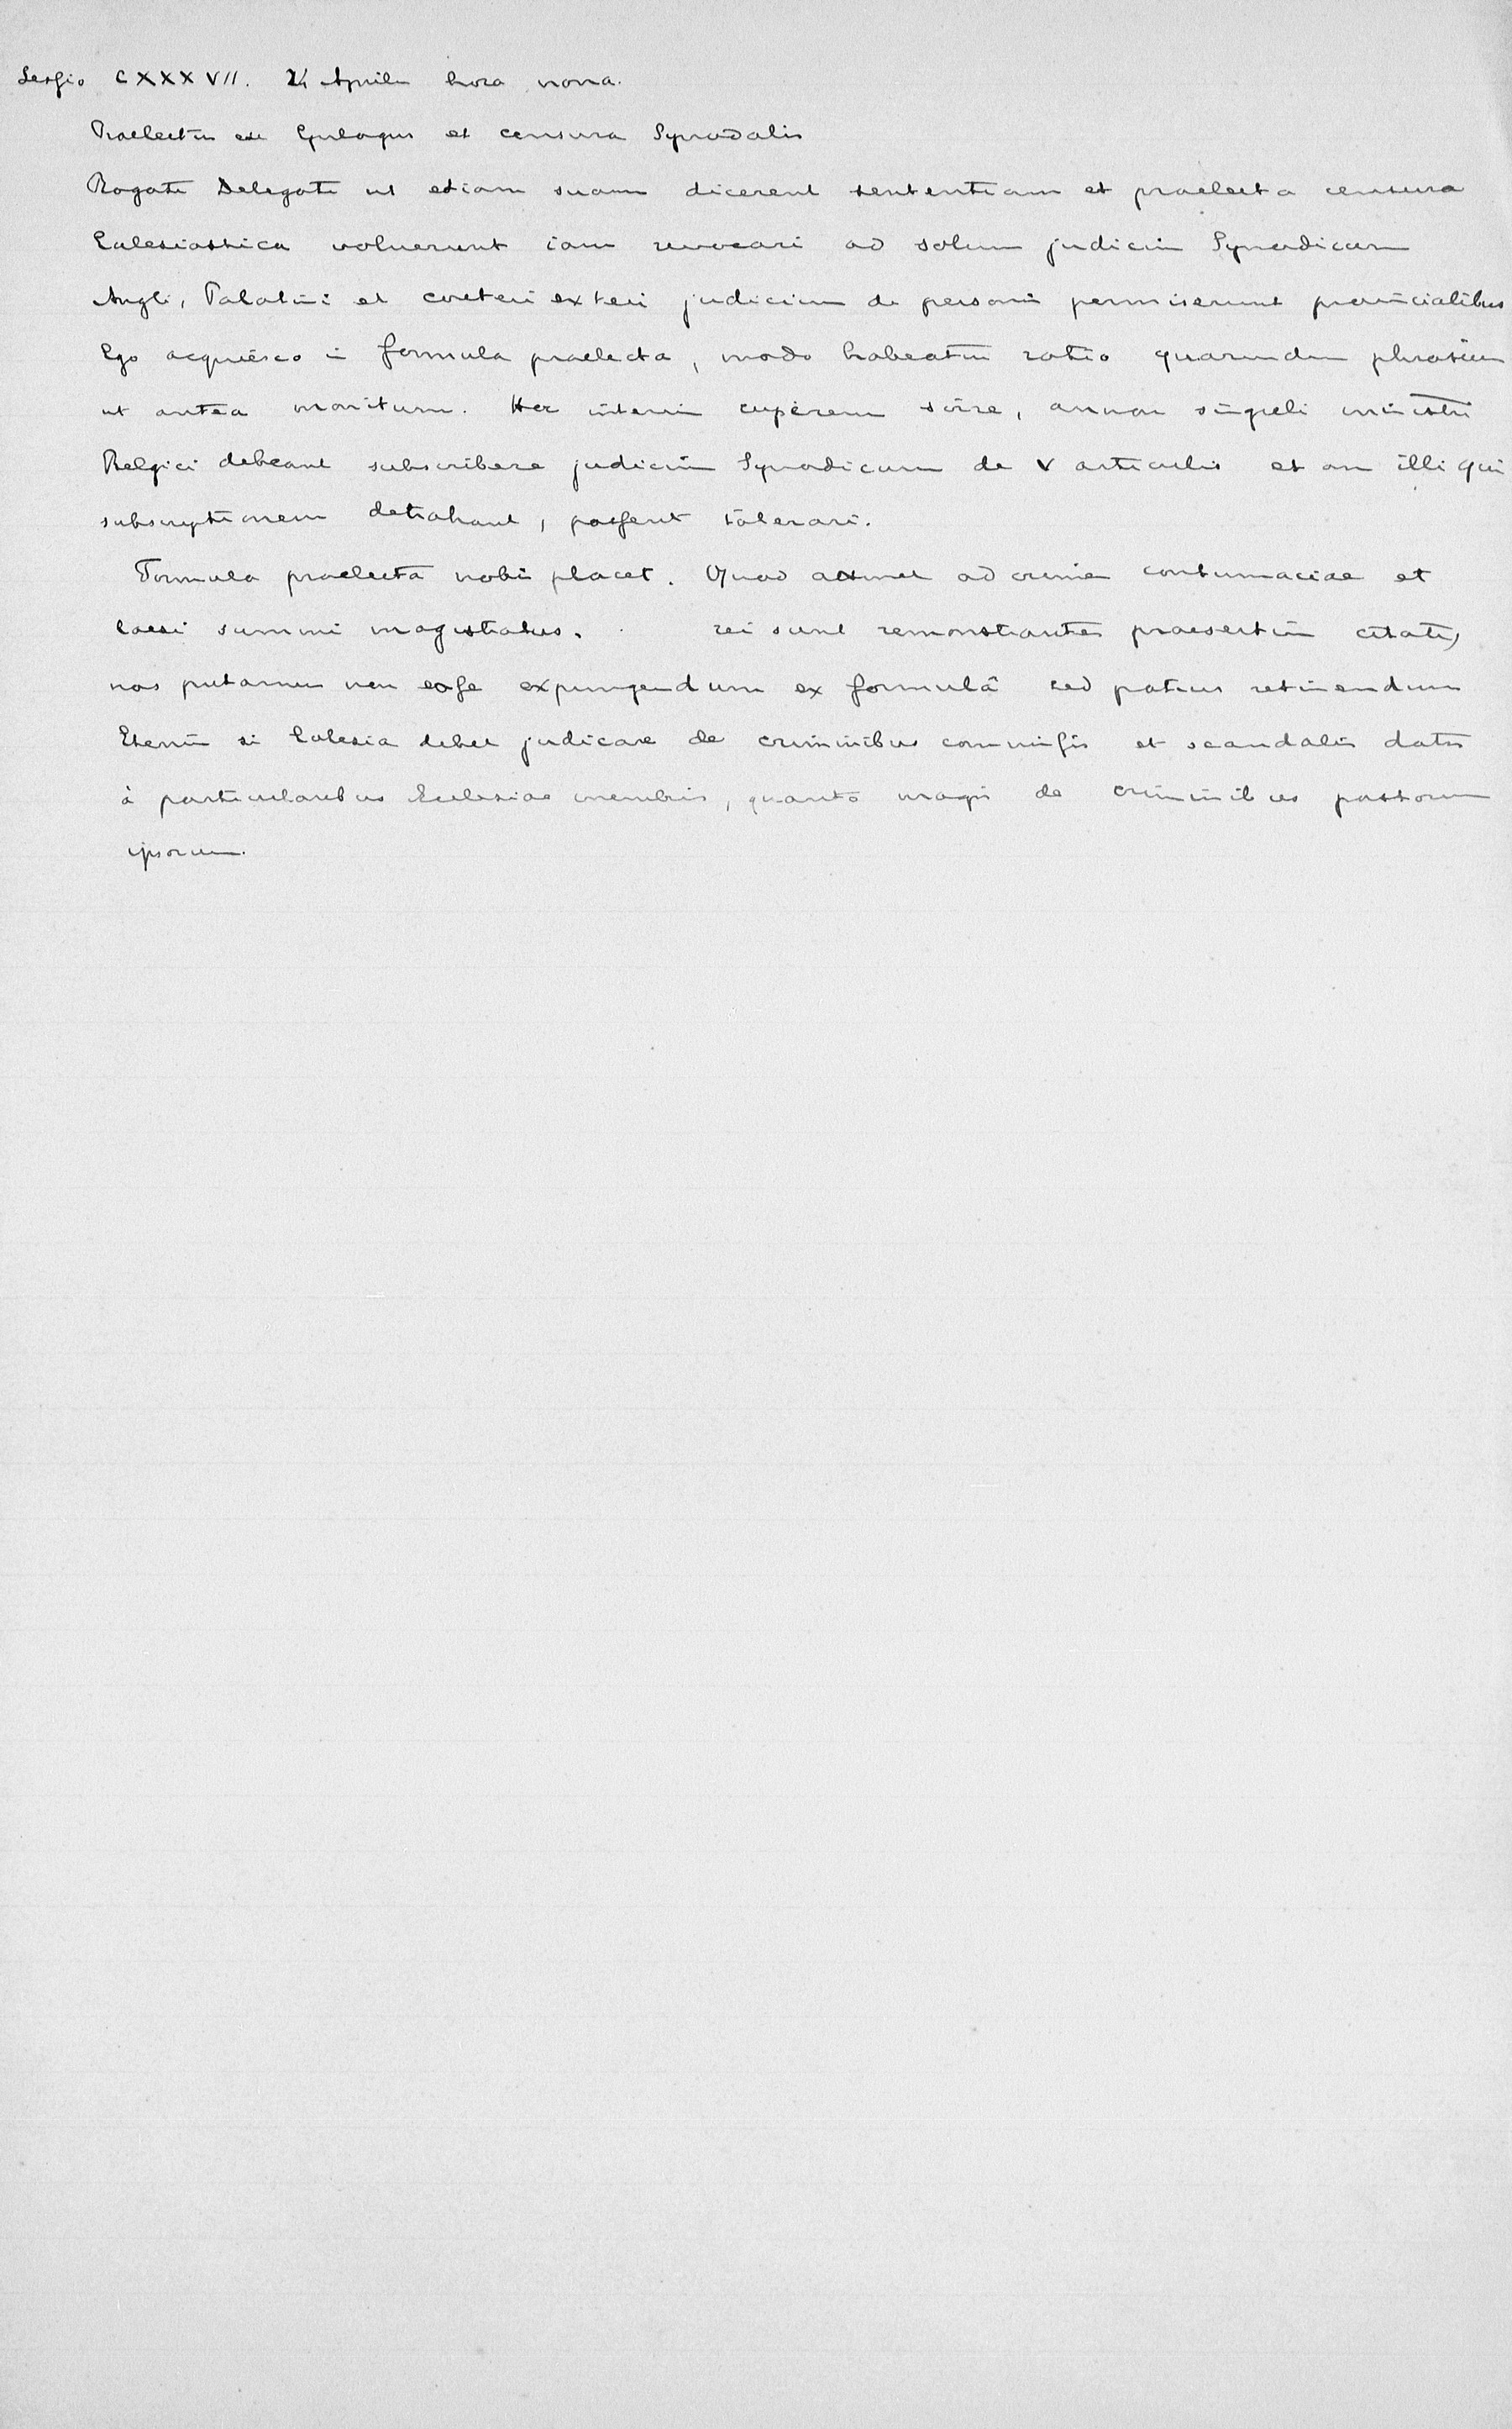 Sessio CXXXVII. 24 Aprilis hora nona.
Praelectus est Epilogus et censura Synodalis
Rogati Delegati ut etiam suam dicerent sententiam et praelecta censura
Ecclesiastica voluerunt eam revocari ad solum judicium Synodicum
Angli, Palatini et coeteri exteri judicium de personis permiserunt provincialibus
Ego acquiesco in formula praelecta, modo habeatur ratio quarundam phrasium
ut antea monitum. Hoc interim cuperem scire, annon singuli ministri
Belgici debeant subscribere judicium Synodicum de V articulis et an illi qui
subscriptionem detrahant, possent tolerari.
Formula praelecta nobis placet. Quod attinet ad crimen contumaciae et
laesi summi magistratus. rei sunt remonstrantes praesertim citati,
nos putamus non esse expungendum ex formulâ sed potius retinendum
Etenim si Ecclesia debet judicare de criminibus commissis et scandalis datis
à particularibus Ecclesiae membris, quanto magis de criminibus pastorum
ipsorum.